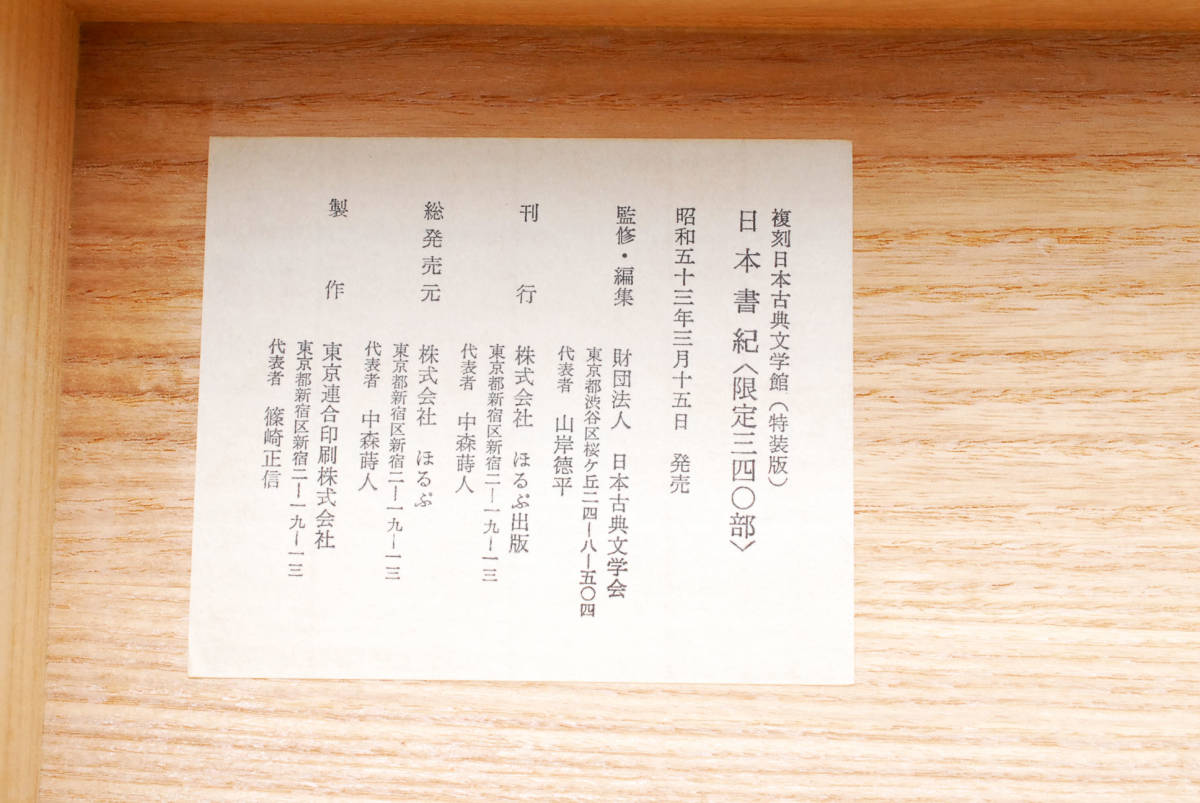 複刻日本古典文学館（特装版）
日本書紀〈限定三四〇部〉
昭和五十三年三月十五日　発売
監修・編集　財団法人　日本古典文学会
東京都渋谷区桜ケ丘二四ー八ー五〇四
代表者　山岸徳平
刊行　株式会社　ほるぷ出版
東京都新宿区新宿二ー一九ー一三
代表者　中森蒔人
総発売元　株式会社　ほるぷ
東京都新宿区新宿二ー一九ー一三
代表者　中森蒔人
製作　東京連合印刷株式会社
東京都新宿区新宿二ー一九ー一三
代表者　篠崎正信